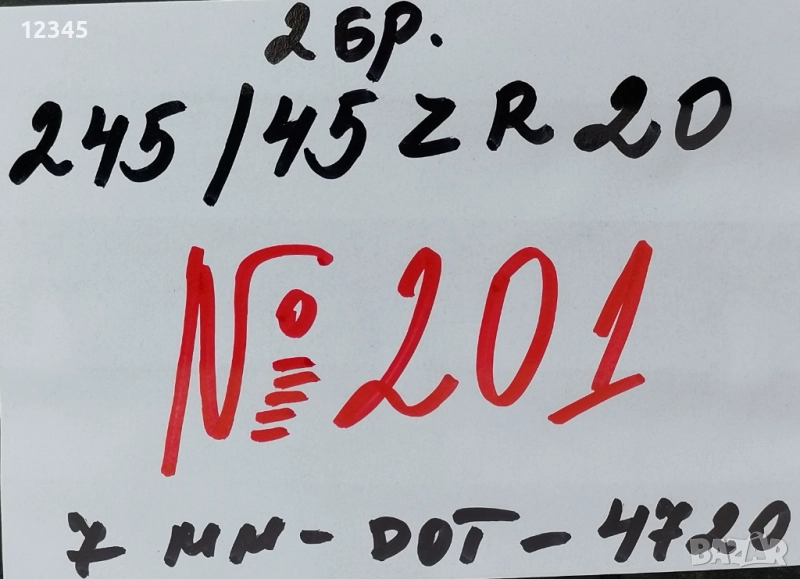 12345
2 бр.
245/45 ZR 20
№ 201
7 мм - DOT - 4720
BAZAR